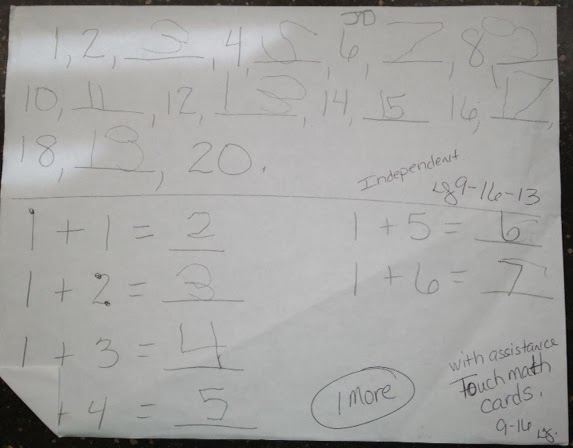 1, 2, 3, 4, 5, 6, 7, 8, 9
10, 11, 12, 13, 14, 15 16, 17,
18, 19, 20.
Independent
9-16-13
1 + 1 = 2
1 + 5 = 6
1 + 2 = 3
1 + 6 = 7
1 + 3 = 4
+ 4 = 5
1 More
with assistance
Touchmath
cards.
9-16